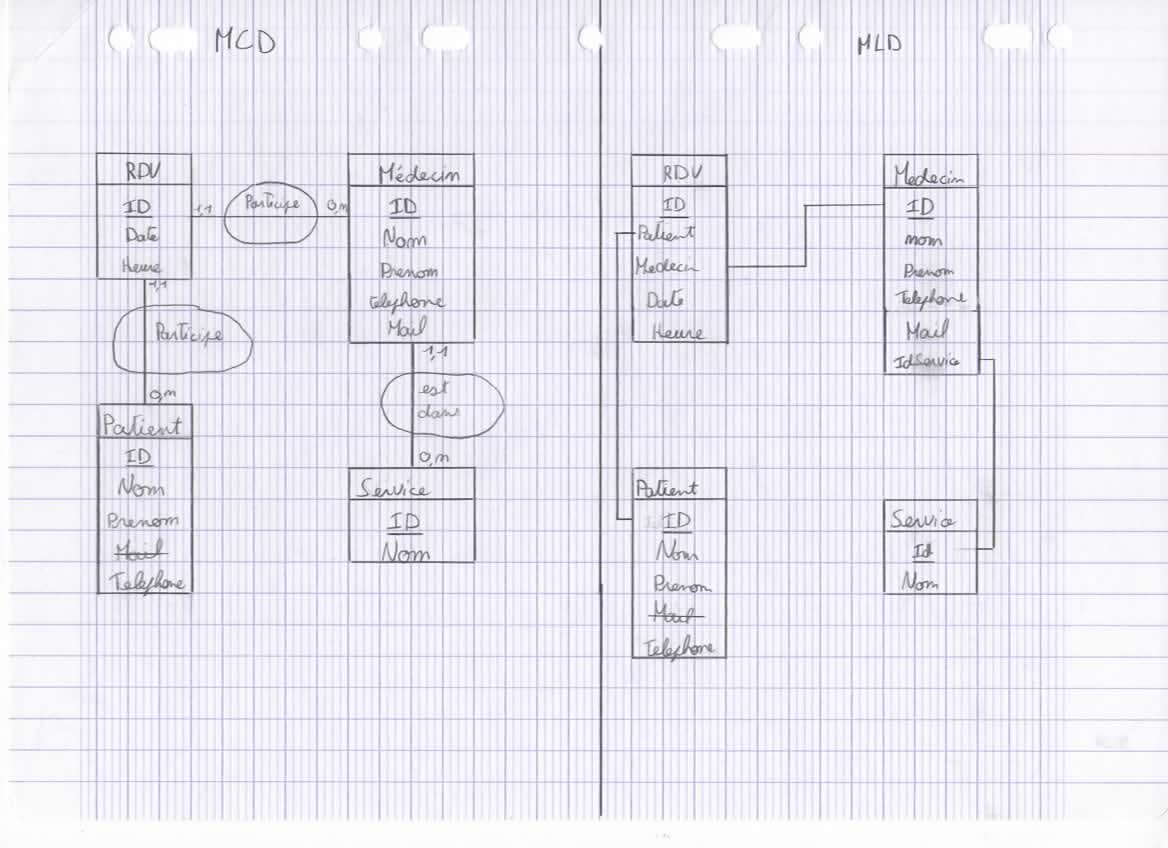 MCD
RDV
ID
Date
Heure
1,1
Participe
0,n
Médecin
ID
Nom
Prenom
telephone
Mail
1,1
Participe
0,n
Patient
ID
Nom
Prenom
Mail
Telephone
1,1
est
dans
0,n
Service
ID
Nom
MLD
RDV
ID
Patient
Medecin
Date
Heure
Medecin
ID
nom
Prenom
Telephone
Mail
IdService
Patient
ID
Nom
Prenom
Mail
Telephone
Service
Id
Nom